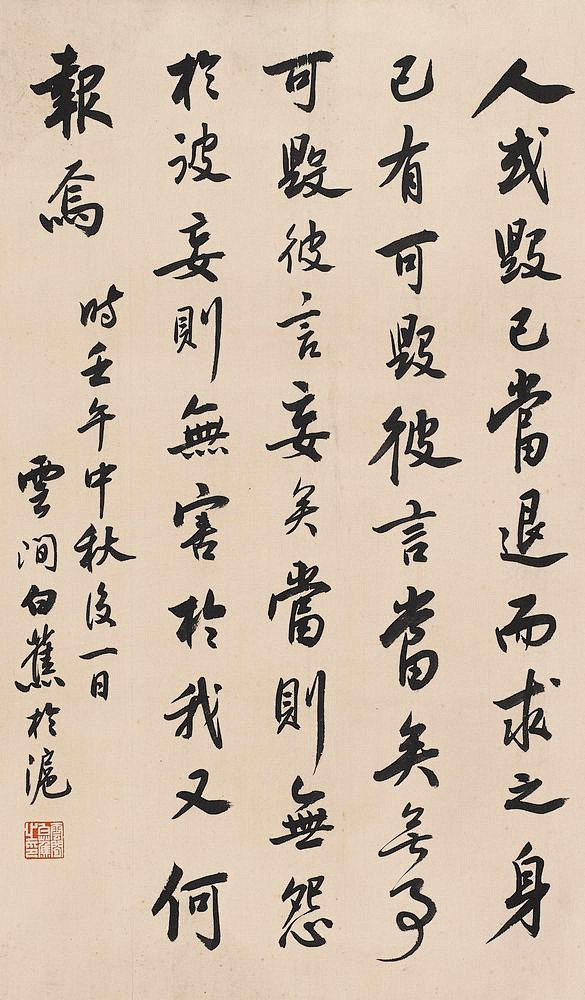 人或毀己當退而求之身
己有可毀彼言當矣無事
可毀彼言妄矣當則無怨
於彼妄則無害於我又何
報焉
時壬午中秋後一日
雲間白蕉於滬
雲間白蕉之印